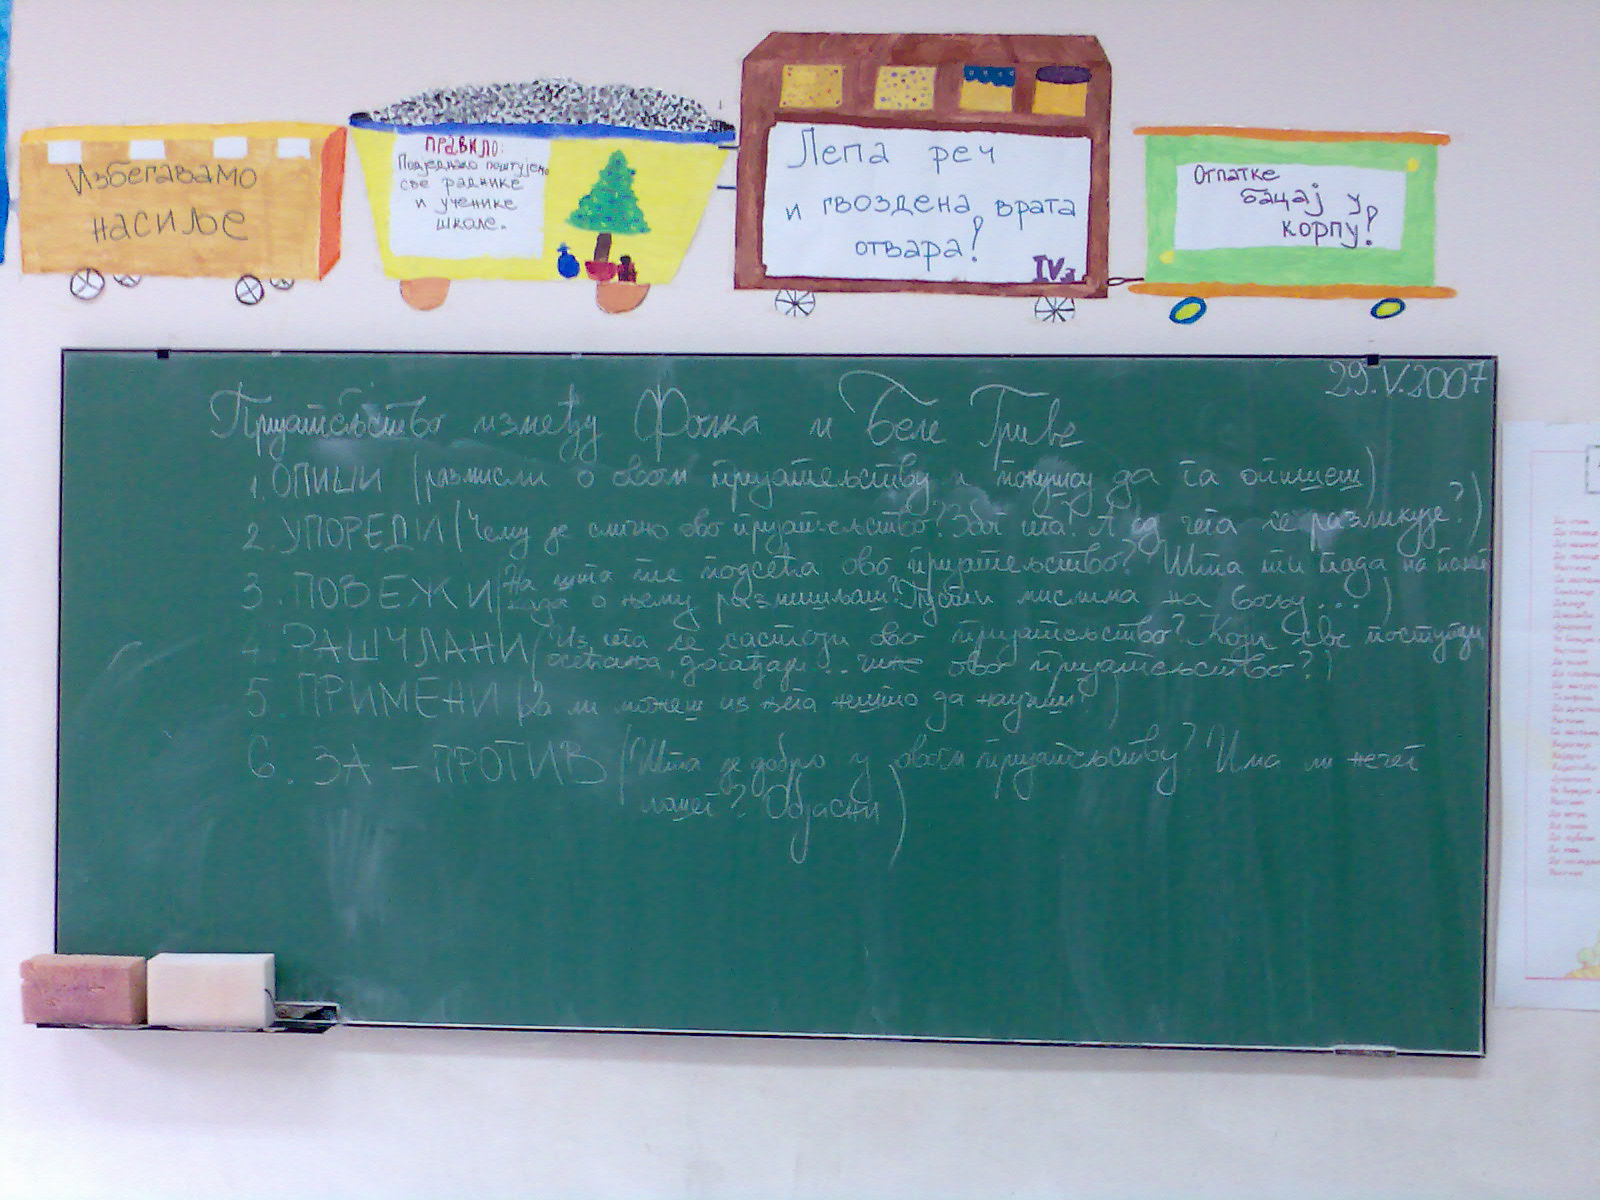 Избегавамо
насиље
ПРАВИЛО:
Подједнако поштујемо
све раднике
и ученике
школе.
Лепа реч
и гвоздена врата
отвара!
IV3
Отпатке
бацај у
корпу!
29.V.2007
Пријатељство између Фолка и Беле Гриве
1. ОПИШИ (размисли о овом пријатељству и покушај да га опишеш)
2. УПОРЕДИ (Чему је слично ово пријатељство? Због чега? А од чега се разликује?)
3. ПОВЕЖИ (На шта те подсећа ово пријатељство? Шта ти пада на памет
када о њему размишљаш? Пусти мислима на вољу...)
4. РАШЧЛАНИ (Из чега се састоји ово пријатељство? Који све поступци,
осећања, догађаји.. чине ово пријатељство?)
5 ПРИМЕНИ (Да ли можеш из њега нешто да научиш?)
6. ЗА – ПРОТИВ (Шта је добро у овом пријатељству? Има ли нечег
лошег? Објасни)